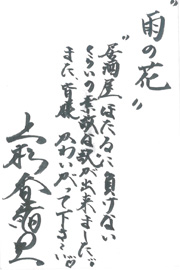 "雨の花"
"居酒屋ほたるに負けない
くらいの素敵な歌が出来ました。
また、皆様、かわいがって下さい…♡
上杉香緒里